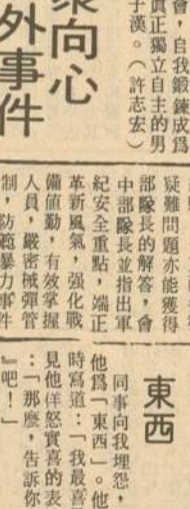 會，自我鍛鍊成爲
眞正獨立自主的男
子漢。（許志宏）
向心
外事件
疑難問題亦能獲得
部隊長的解答，會
中部隊長並指出軍
紀安全重點，端正
革新風氣，强化戰
備値勤，有效掌握
人員，嚴密械彈管
制，防範暴力事件
東西
同事向我埋怨，
他爲「東西」。他
時寫道：「我最喜
見他佯怒實喜的表
：「那麼，告訴你
』吧！」